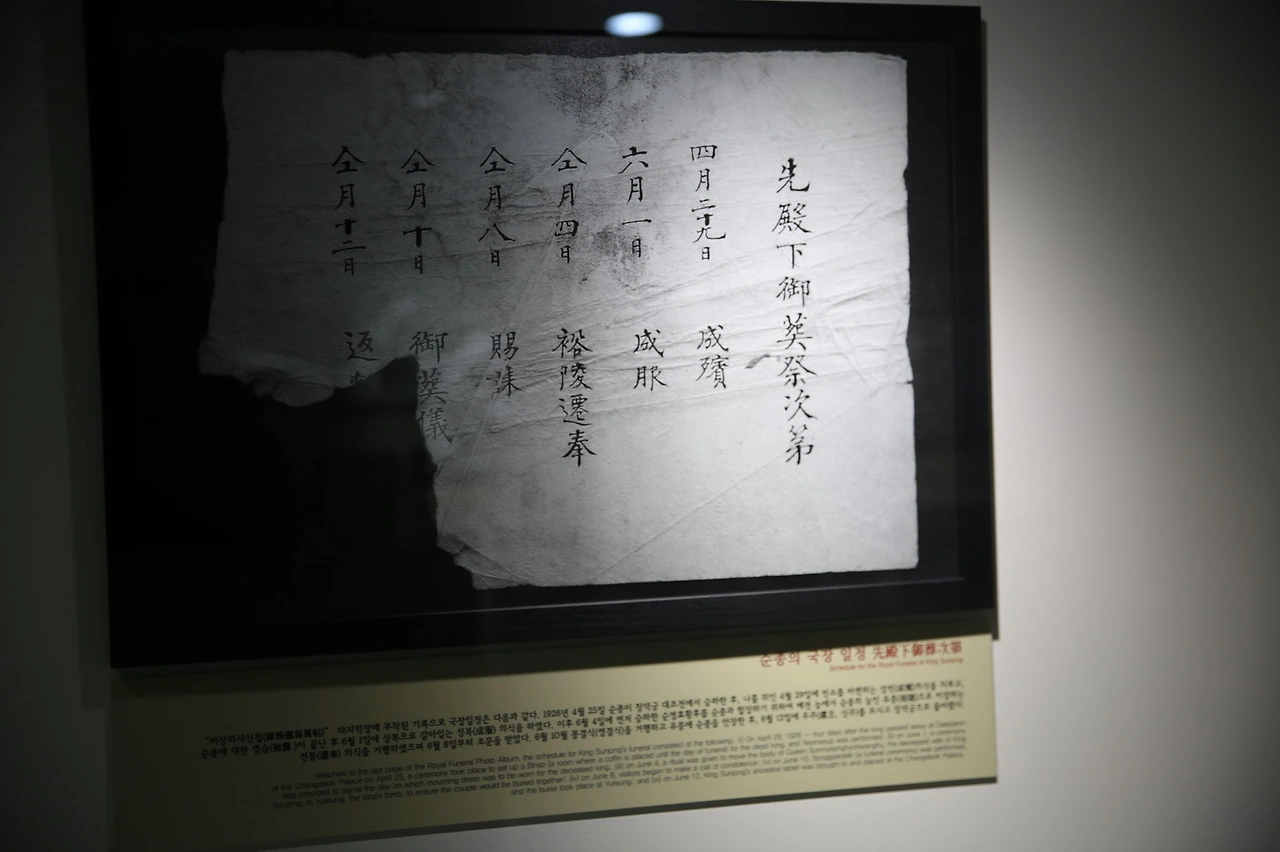 先殿下御葬祭次第
四月二十九日 成殯
六月一日 成服
仝月四日 裕陵遷奉
仝月八日 賜誄
仝月十日 御葬儀
仝月十二日 返
순종의 국장 일정 先殿下御葬次第
Schedule for the Royal Funeral of King Sunjong
마지막장에 부착된 기록으로 국장일정은 다음과 같다. 1926년 4월 25일 순종이 창덕궁 대조전에서 승하한 후, 나흘 뒤인 4월 29일에 빈소를 마련하는 성빈 의식을 치르고,
순종에 대한 염습 이 끝난 후 6월 1일에 상복으로 갈아입는 성복(成服) 의식을 하였다. 이후 6월 4일에 먼저 승하한 순명효황후를 순종과 합장하기 위하여
의식을 거행하였으며 6월 8일부터 조문을 받았다. 6월 10일 봉결식(영결식)을 거행하고 유릉에 순종을 안장한 후, 6월 12일에 우주
Attached to the last page of the Royal Funeral Photo Album, the schedule for King Sunjong's funeral consisted of the following: (i) On April 29, 1926 — four days after the king passed away at Daejojeon
at the Changdeok Palace on April 25, a ceremony took place to set up a Binso (a room where a coffin is placed until the day of funeral) for the dead king;
was provided to signal the day on which mourning dress was to be worn for the deceased king; (iii) on June 4, a ritual was given to move the body of Queen
Sunjong, to Yureung, the king's tomb, to ensure the couple would be buried together; (iv) on June 8, visitors began to make a call of condolence; (v) on June 10,
and the burial took place at Yureung; and (vi) on June 12, King Sunjong's ancestral tablet was brought to and placed at the Changdeok Palace.